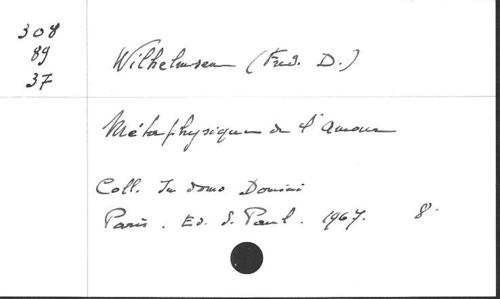 308
89
37
Wilhelmsen (Fred. D.)
Métaphysique de l'amour
Coll. In domo Domini
Paris. Ed. S. Paul. 1967. 8°